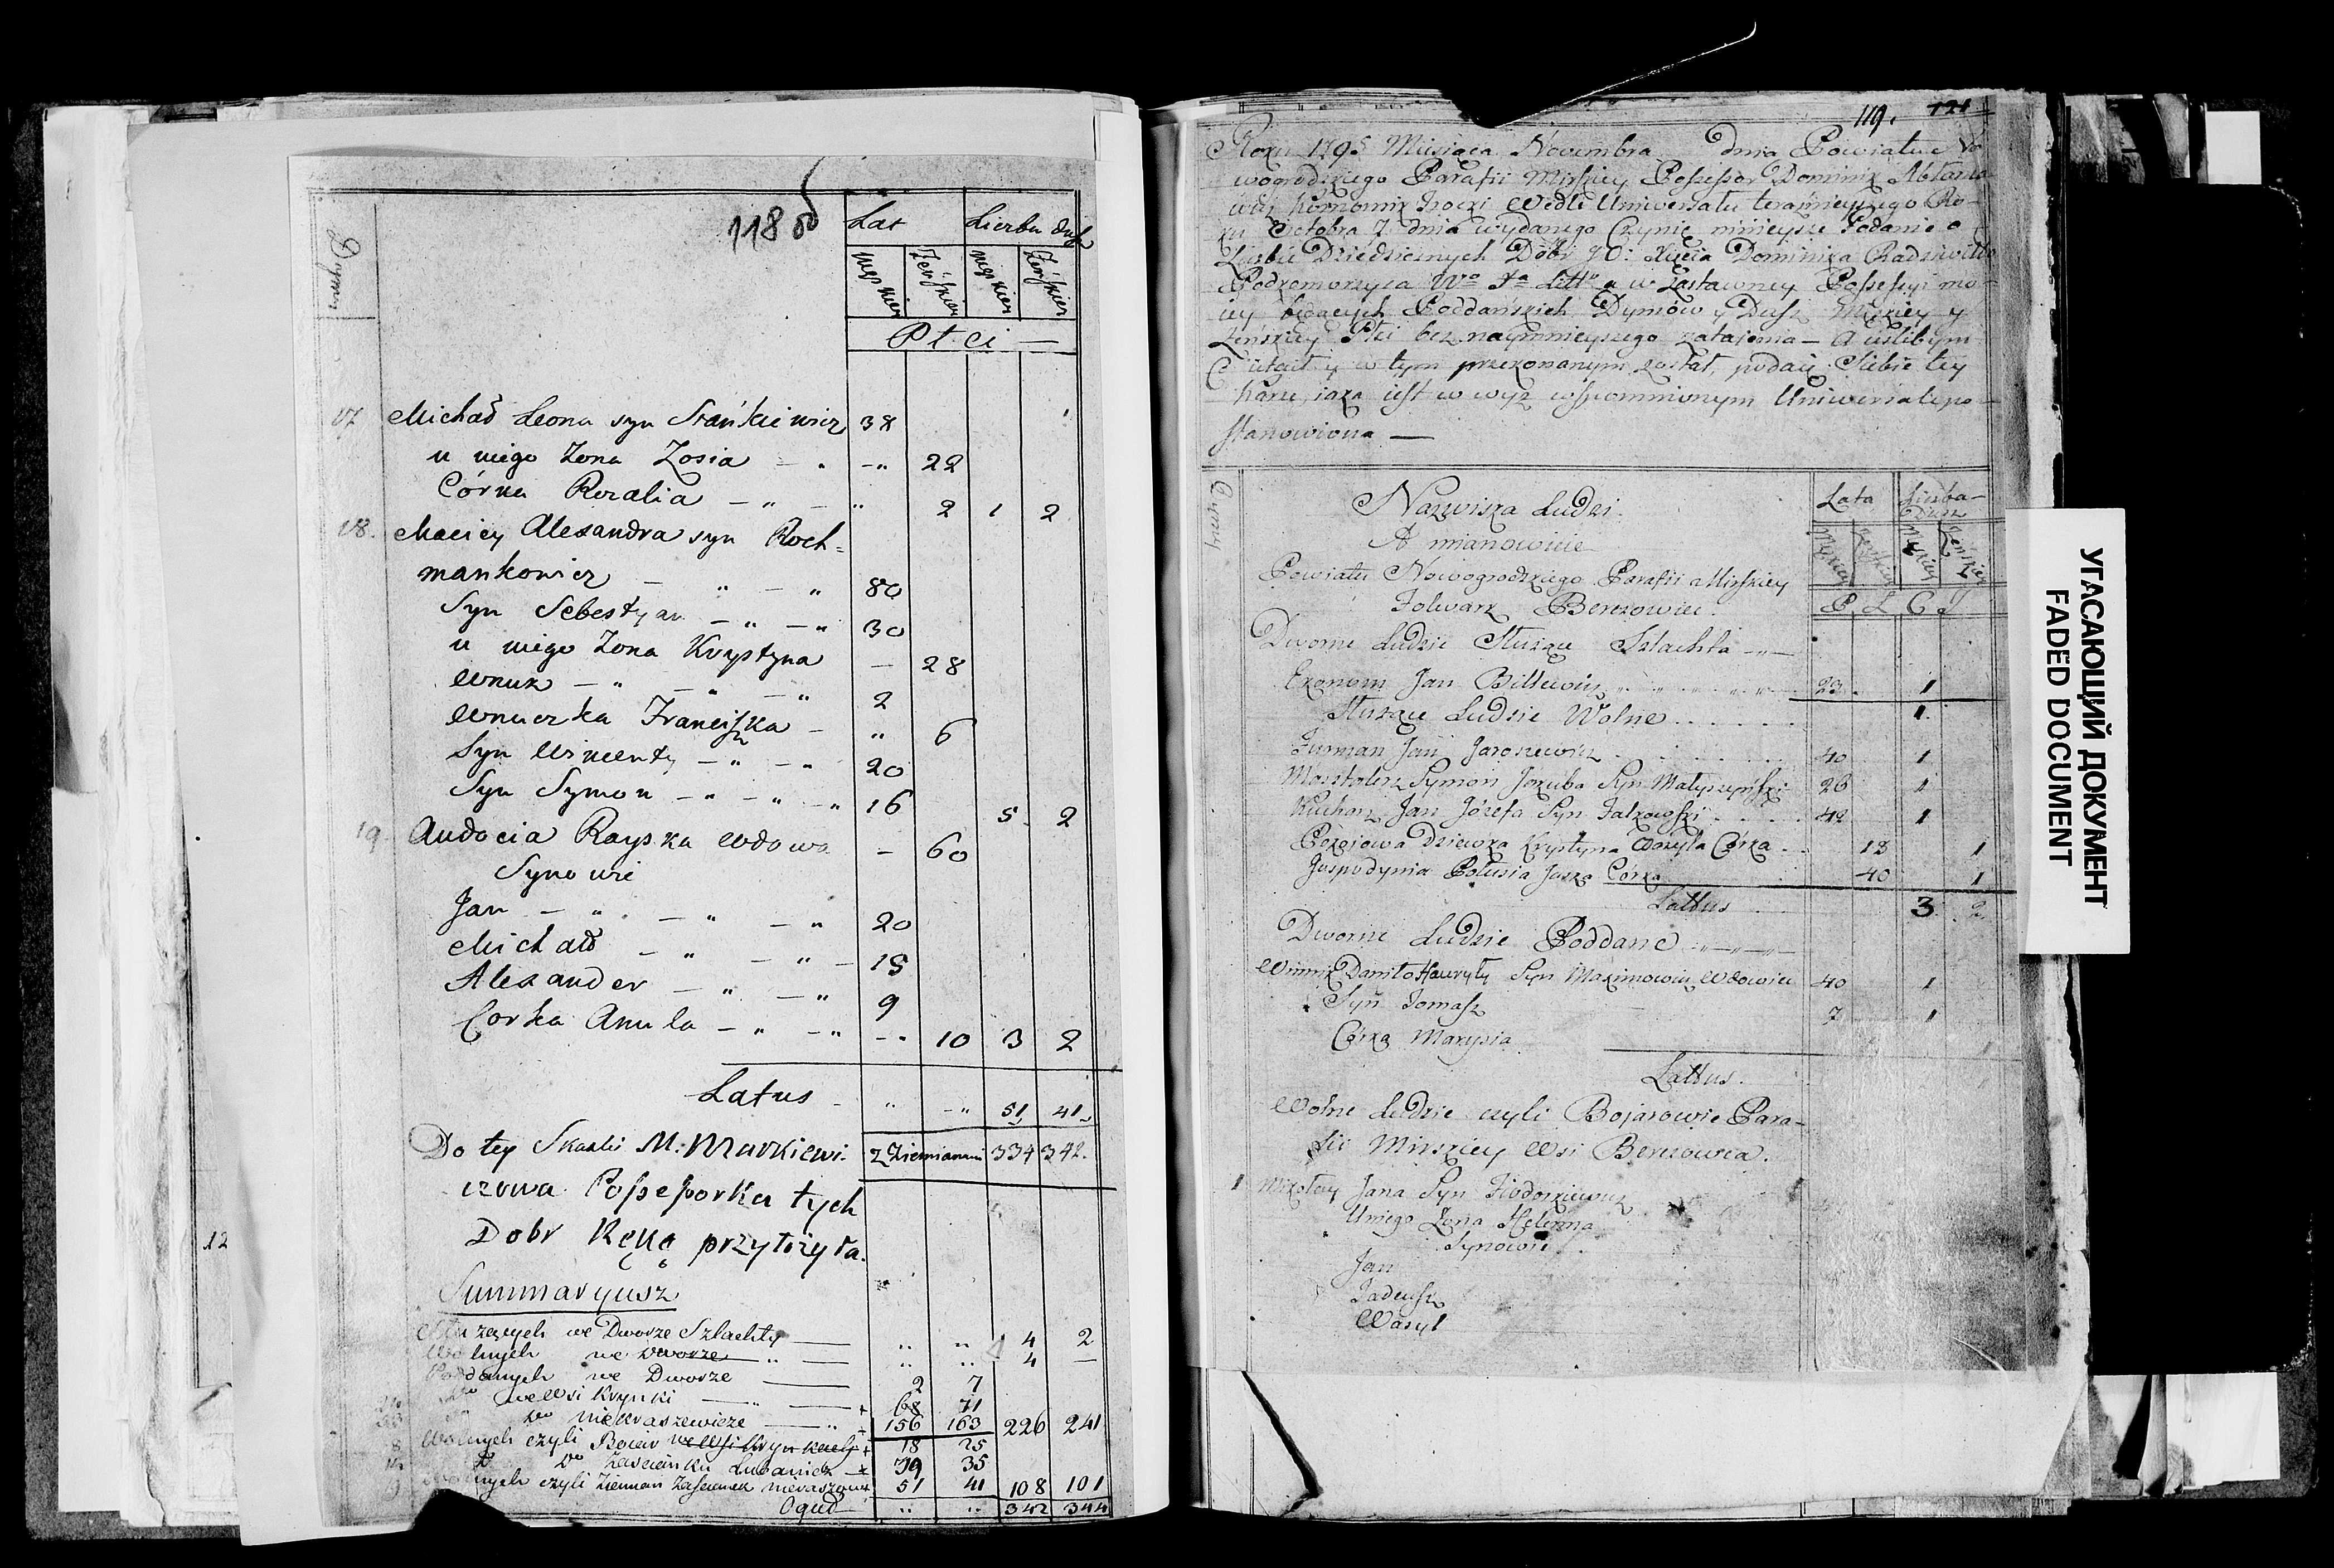 118 об
Dymy
Lat Liczba dusz
męskiey Żeńskiey męskiey Żeńskiey
Płci —
17 Michał Leona syn Stańkiewicz 38
u niego Żona Zosia - „ -„ 22
Córka Rozalia — „ — „ 2 1 2
18. Maciey Alexandra syn Roch=
mankowicz — „ — „ 80
Syn Sebestyan — „ — „ 30
u niego Żona Krystyna — 28
Wnuk — „ — „ — „ 2
Wnuczka Franciszka — „ 6
Syn Wincenty — „ — „ 20
Syn Symon — „ — „ — „ 16 5 2
19 Audocia Rayska Wdowa — 60
Synowie
Jan — „ — „ — „ 20
Michał — „ — „ — 15
Alexander — „ — „ 9
Corka Anula — „ — „ -„ 10 3 2
Latus - „ -„ 51 41
Do tey Skaski M: Markiewi- z Ziemianami 334 342.
czowa Possessorka tych
Dobr Ręką przytożyła.
Summaryusz
Służących we Dworze Szlachty — „ „ 4 2
Wolnych we Dworze „ — „ „ 4 —
Poddanych we Dworze — 2 7
do we Wsi Krynki — „ — 68 71
do Niekraszewicze — „ 156 163 226 241
Wolnych czyli Boiar we Wsi Krynkach 18 25
do Zaścianku Lubanicz — 39 35
czyli Ziemian Zaścianek 51 41 108 101
Oguł „ „ 342 344
12
119. 121
Roku 1795 Miesiąca Novembra dnia Powiatu No
wogrodzkiego Parafii Mirskiey Possessor Dominik Abłamo
wicz Komornik Trocki Wedle Uniwersału teraźnieyszego Ro-
ku Octobra 7 dnia wydanego Czynię ninieysze Podanie o
Liczbie Dziedzicznych Dobr JO: Xięcia Dominika Radziwiłła
Podkomorzyca Wo Xa Litto a w Zastawney Possessyi mo
iey będących Poddańskich Dymów y Dusz Męzkiey y
Żeńskiey Płci bez naymnieyszego zataienia — A ieślibym
Co utaił y w tym przekonanym został, podaię Siebie tey
karze, iaka iest w wyż wspomnionym Uniwersale po-
stanowiona —
Dymy
Nazwiska Ludzi Lata Liczba Dusz
A mianowicie Męzkiey Żeńskiey Męzkiey Żeńskiey
Powiatu Nowogrodzkiego Parafii Mirskiey
Folwark Berezowiec. P Ł C I
Dworne Ludzie Służące Szlachta —„—
Ekonom Jan Billewicz 23. 1
Służące Ludzie Wolne 1.
Furman Jan Jaroszewicz 40 1
Masztalerz Symon Jakuba Syn Matyszyński 26 1
Kucharz Jan Józefa Syn Falkowski 42 1
Pokojowa Dziewka Krystyna Wasyla Córka 18 1
Gospodynia Połusia Jaska Córka 40 1
Lattus 3 2
Dworne Ludzie Poddane —„—„—
Winnik Daniło Hawryły Syn Maximowicz Wdowiec 40 1
Syn Tomasz 7 1
Córka Marysia 1
Lattus.
Wolne Ludzie czyli Bojarowie Para-
fii Mirskiey Wsi Berezowca.
1 Mikołay Jana Syn Fiodorkiewicz
U niego Żona Helenna
Synowie
Jan
Tadeusz
Wasyl
УГАСАЮЩИЙ ДОКУМЕНТ
FADED DOCUMENT